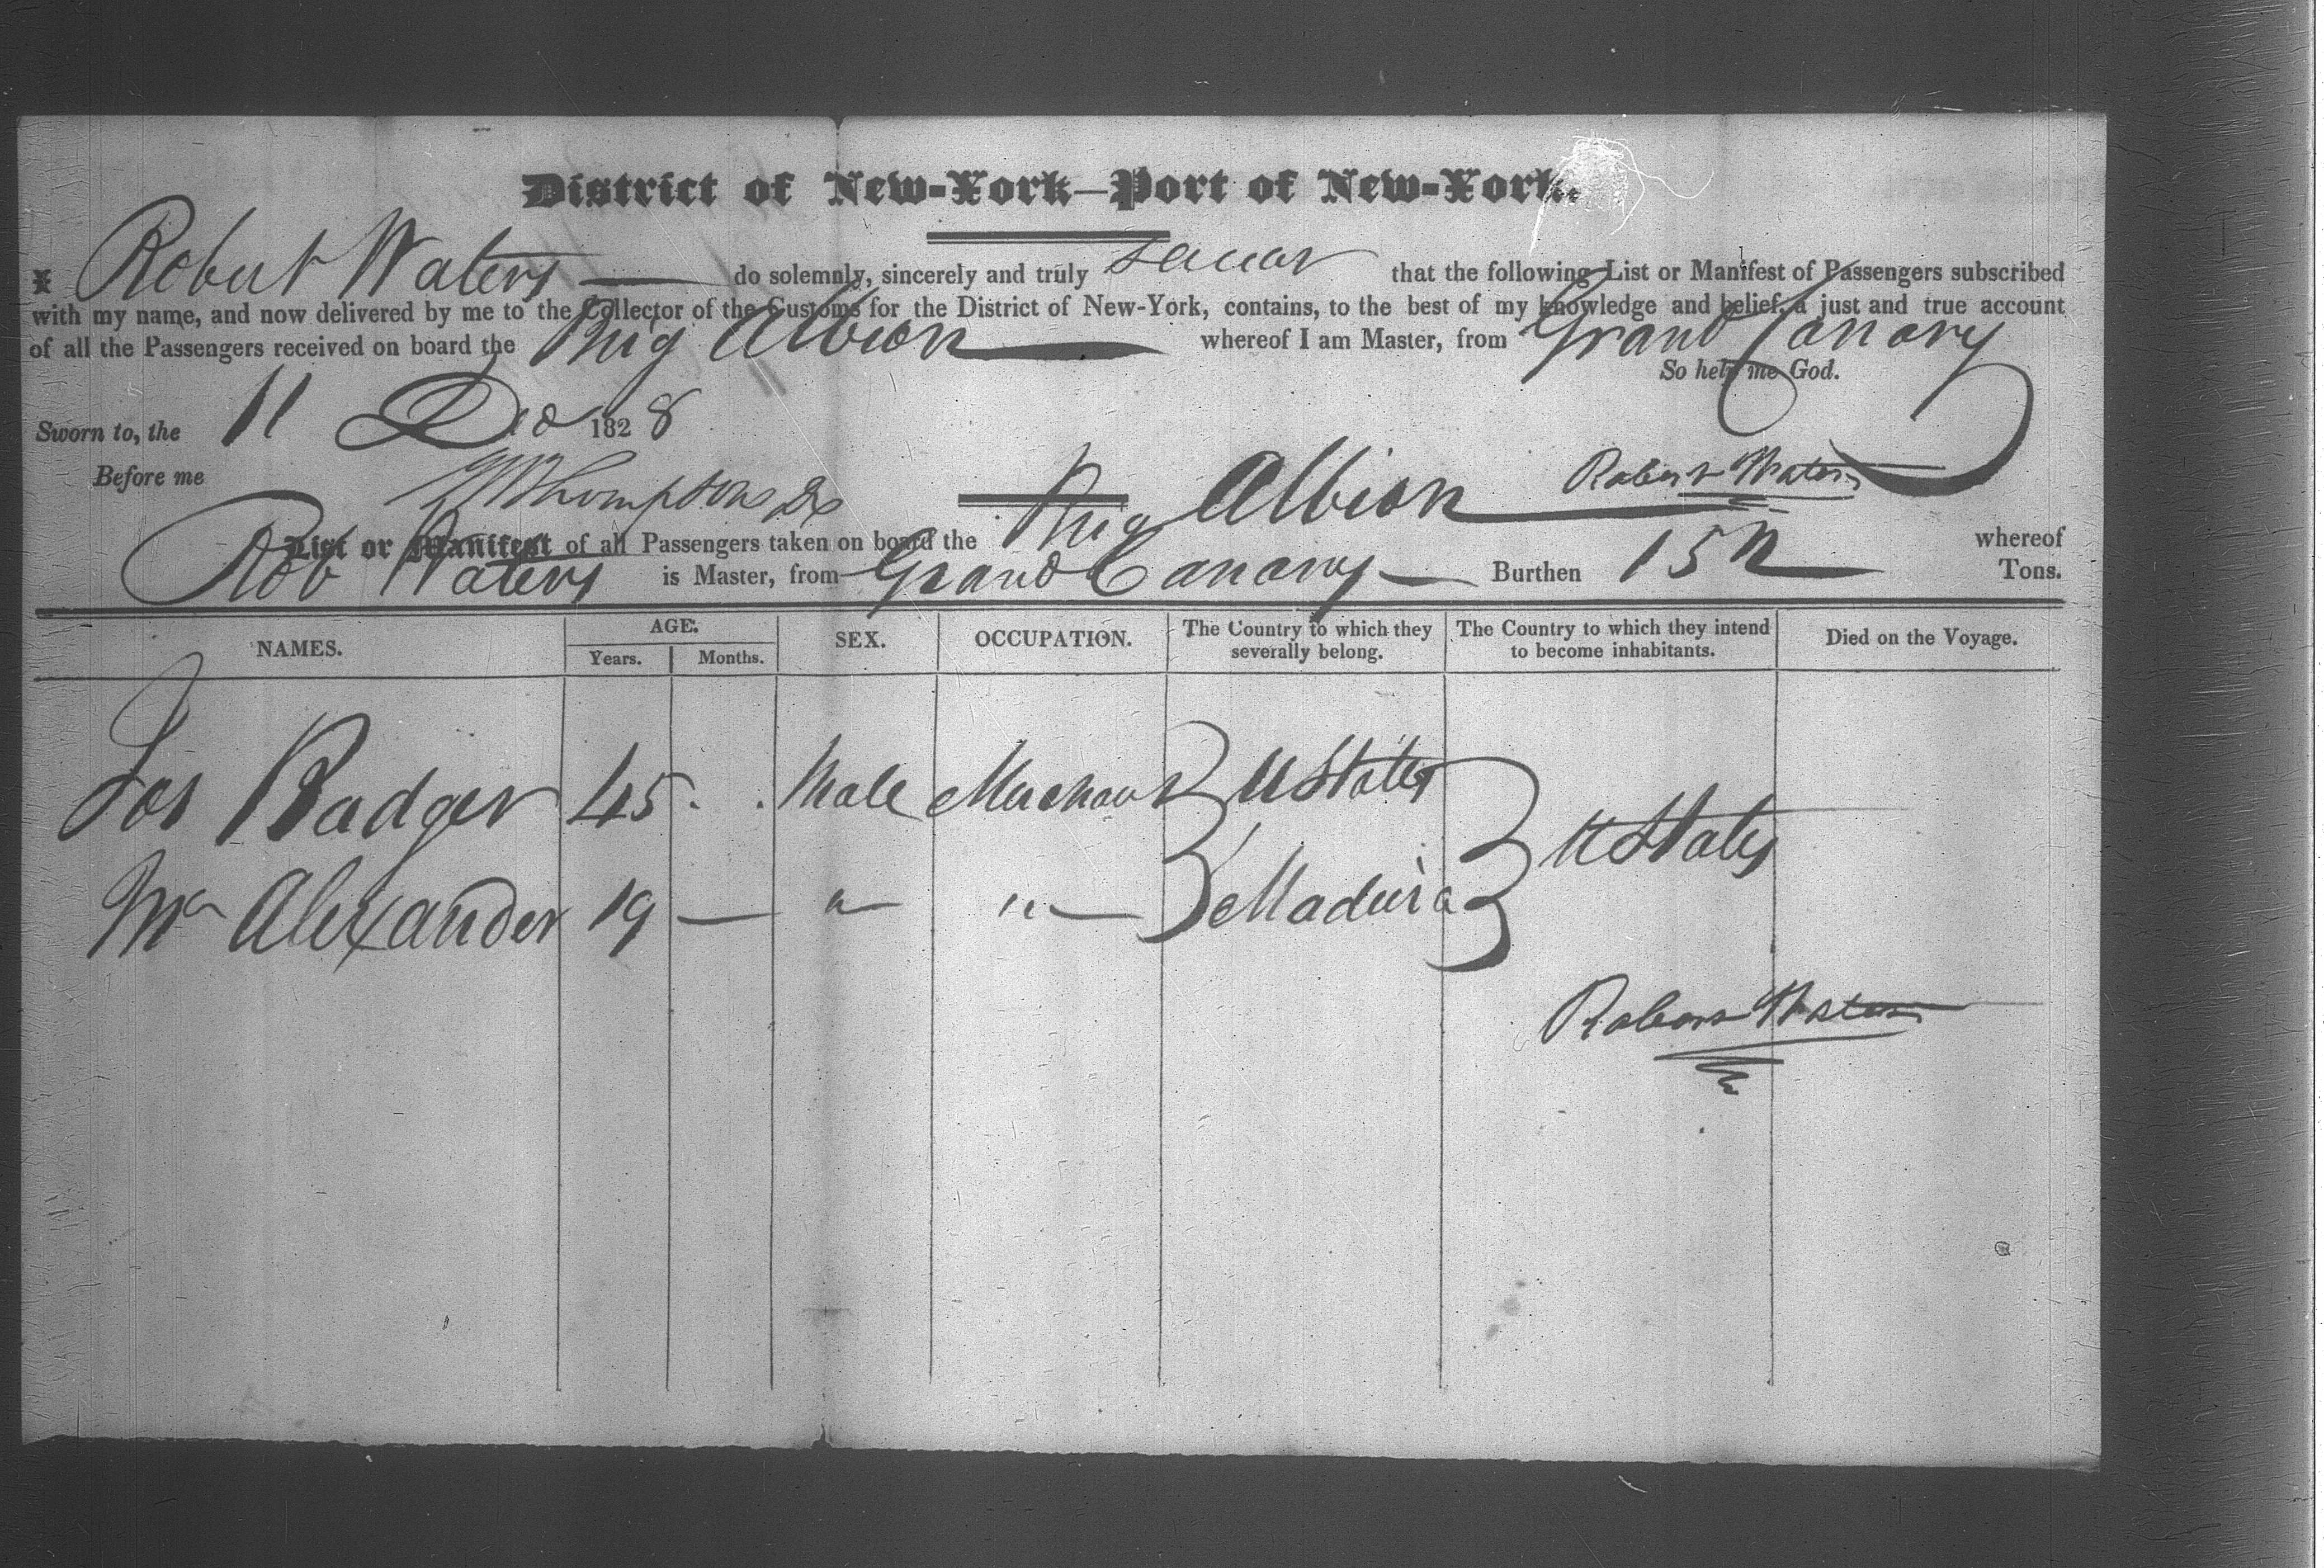 District of New-York—Port of New-York.
I Robert Waters — do solemnly, sincerely and truly swear that the following List or Manifest of Passengers subscribed
with my name, and now delivered by me to the Collector of the Customs for the District of New-York, contains, to the best of my knowledge and belief, a just and true account
of all the Passengers received on board the Brig Albion — whereof I am Master, from Grand Canary
So help me God.
Sworn to, the 11 Dec 1828
Before me Thompson Robert Waters
List or Manifest of all Passengers taken on board the Brig Albion — whereof
Rob Waters is Master, from Grand Canary — Burthen Tons.
NAMES. AGE. SEX. OCCUPATION. The Country to which they severally belong. The Country to which they intend to become inhabitants. Died on the Voyage.
Years. Months.
Jos Badger 45 . . Male Merchant U States
U States
Mr Alexander 19 — " — " — Madeira
Robert Waters